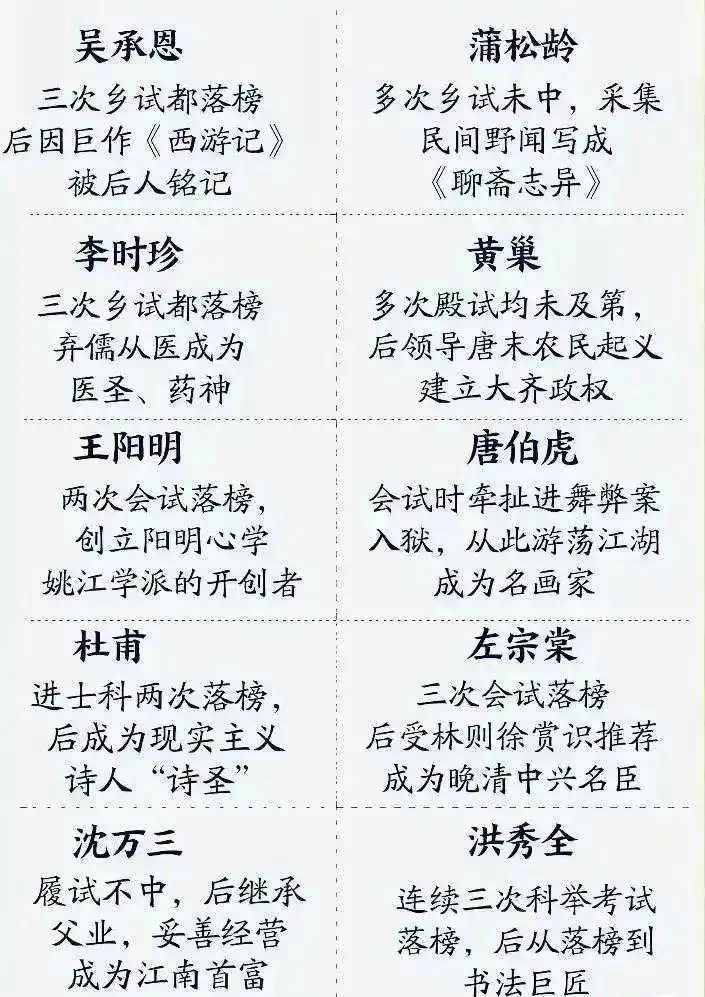 吴承恩
三次乡试都落榜
后因巨作《西游记》
被后人铭记
蒲松龄
多次乡试未中，采集
民间野闻写成
《聊斋志异》
李时珍
三次乡试都落榜
弃儒从医成为
医圣、药神
黄巢
多次殿试均未及第，
后领导唐末农民起义
建立大齐政权
王阳明
两次会试落榜，
创立阳明心学
姚江学派的开创者
唐伯虎
会试时牵扯进舞弊案
入狱，从此游荡江湖
成为名画家
杜甫
进士科两次落榜，
后成为现实主义
诗人“诗圣”
左宗棠
三次会试落榜
后受林则徐赏识推荐
成为晚清中兴名臣
沈万三
履试不中，后继承
父业，妥善经营
成为江南首富
洪秀全
连续三次科举考试
落榜，后从落榜到
书法巨匠